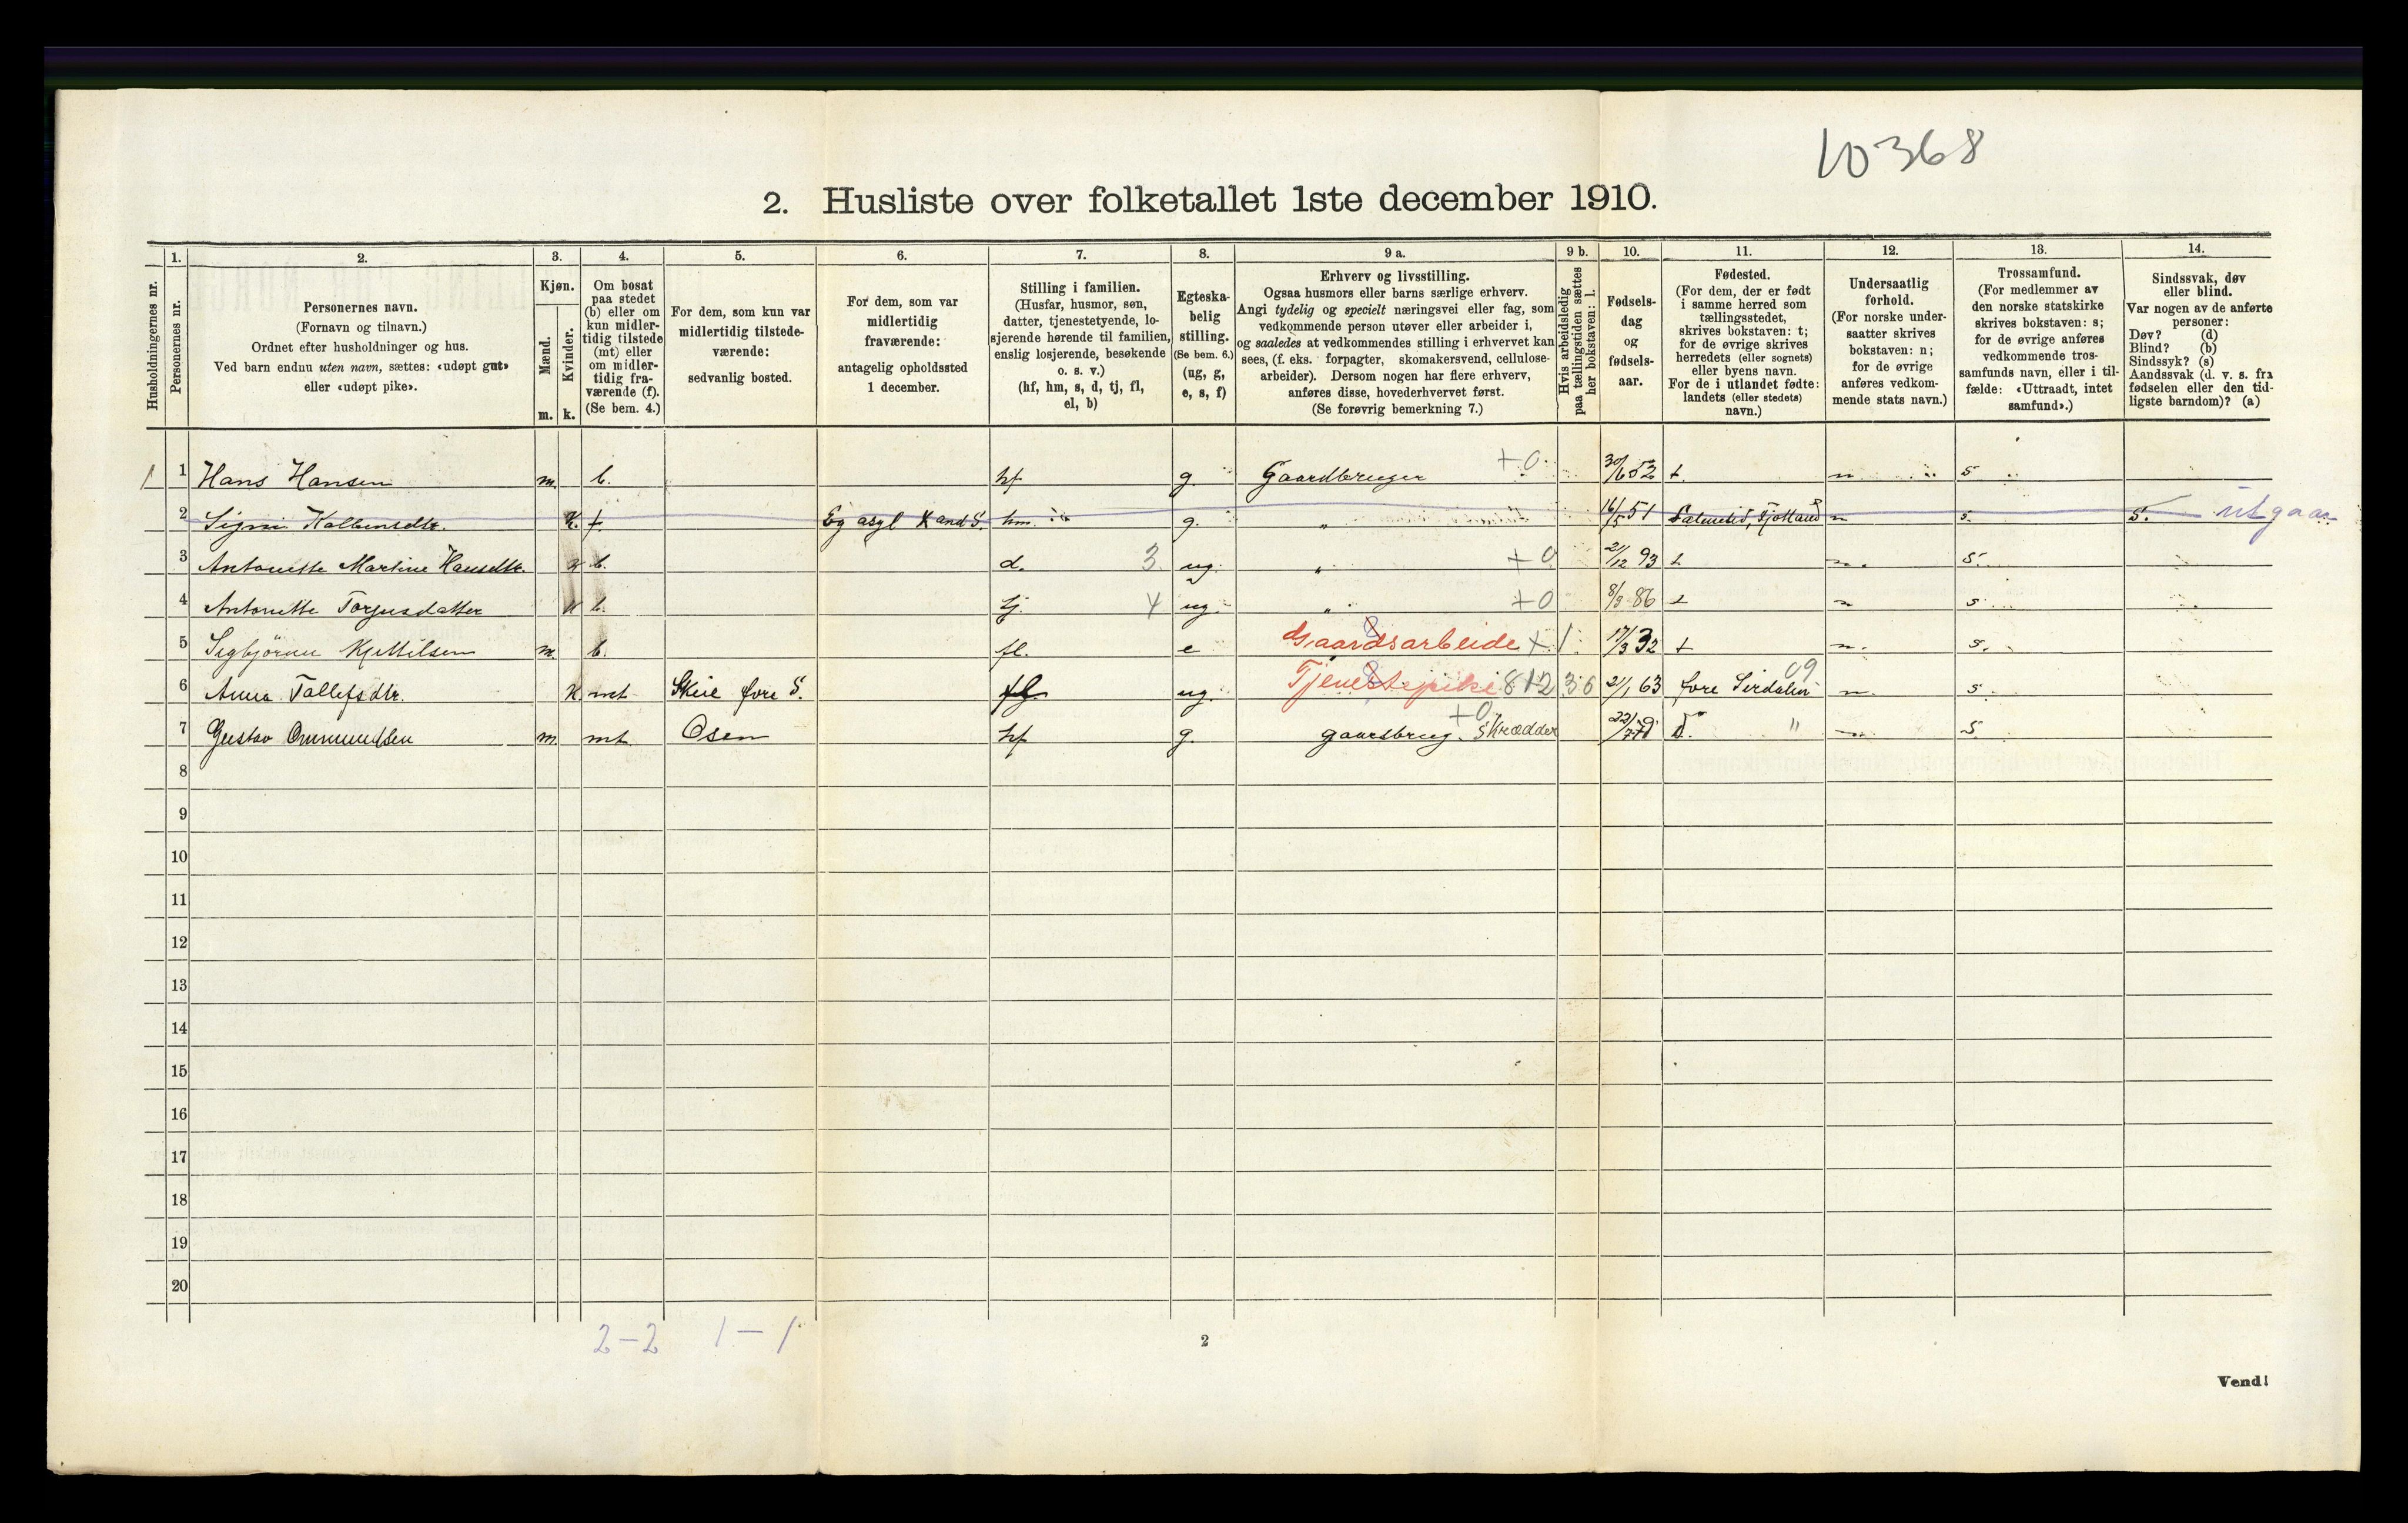 10368
2. Husliste over folketallet 1ste december 1910.
Husholdningernes nr.
1. Personernes nr.
2. Personernes navn.
(Fornavn og tilnavn.)
Ordnet efter husholdninger og hus.
Ved barn endnu uten navn, sættes: «udøpt gut»
eller «udøpt pike».
3. Kjøn.
Mænd. m.
Kvinder. k.
4. Om bosat
paa stedet
(b) eller om
kun midler-
tidig tilstede
(mt) eller
om midler-
tidig fra-
værende (f).
(Se bem. 4.)
5. For dem, som kun var
midlertidig tilstede-
værende:
sedvanlig bosted.
6. For dem, som var
midlertidig
fraværende:
antagelig opholdssted
1 december.
7. Stilling i familien.
(Husfar, husmor, søn,
datter, tjenestetyende, lo-
sjerende hørende til familien,
enslig losjerende, besøkende
o. s. v.)
(hf, hm, s, d, tj, fl,
el, b)
8. Egteska-
belig
stilling.
(Se bem. 6.)
(ug, g,
e, s, f)
9 a. Erhverv og livsstilling.
Ogsaa husmors eller barns særlige erhverv.
Angi tydelig og specielt næringsvei eller fag, som
vedkommende person utøver eller arbeider i,
og saaledes at vedkommendes stilling i erhvervet kan
sees, (f. eks. forpagter, skomakersvend, cellulose-
arbeider). Dersom nogen har flere erhverv,
anføres disse, hovederhvervet først.
(Se forøvrig bemerkning 7.)
9 b. Hvis arbeidsledig
paa tællingstiden sættes
her bokstaven: l.
10. Fødsels-
dag
og
fødsels-
aar.
11. Fødested.
(For dem, der er født
i samme herred som
tællingsstedet,
skrives bokstaven: t;
for de øvrige skrives
herredets (eller sognets)
eller byens navn.
For de i utlandet fødte:
landets (eller stedets)
navn.)
12. Undersaatlig
forhold.
(For norske under-
saatter skrives
bokstaven: n;
for de øvrige
anføres vedkom-
mende stats navn.)
13. Trossamfund.
(For medlemmer av
den norske statskirke
skrives bokstaven: s;
for de øvrige anføres
vedkommende tros-
samfunds navn, eller i til-
fælde: «Uttraadt, intet
samfund».)
14. Sindssvak, døv
eller blind.
Var nogen av de anførte
personer:
Døv? (d)
Blind? (b)
Sindssyk? (s)
Aandssvak (d. v. s. fra
fødselen eller den tid-
ligste barndom)? (a)
1 1 Hans Hansen m. b. hf g. Gaardbruger +0 30/6 52 t. n s
2 K. f Eg asyl Kand S. hm. g. " 16/5 51 n s. S. utgaar
3 Antonette Martine Hansdtr. k b. d. 3 ug. " +0 21/12 93 t n. s.
4 Antonette Torjusdatter k b. tj. 4 ug. " +0 8/9 86 t n s
5 Sigbjörn Kjittilsen m. b. fl. e Gaardsarbeide + 1 17/3 32 t n. s.
6 Anna Tallefsdtr. K. mt Skeie fore S. fl ug. Tjenestepike 812 36 21/1 63 fore Sirdalen 09 n. s.
7 Gustav Ommundsen m. mt. Osen hf g. gaarsbrug. Skrædder +0 " n. s.
8
9
10
11
12
13
14
15
16
17
18
19
20
2-2 1-1
2
Vend!